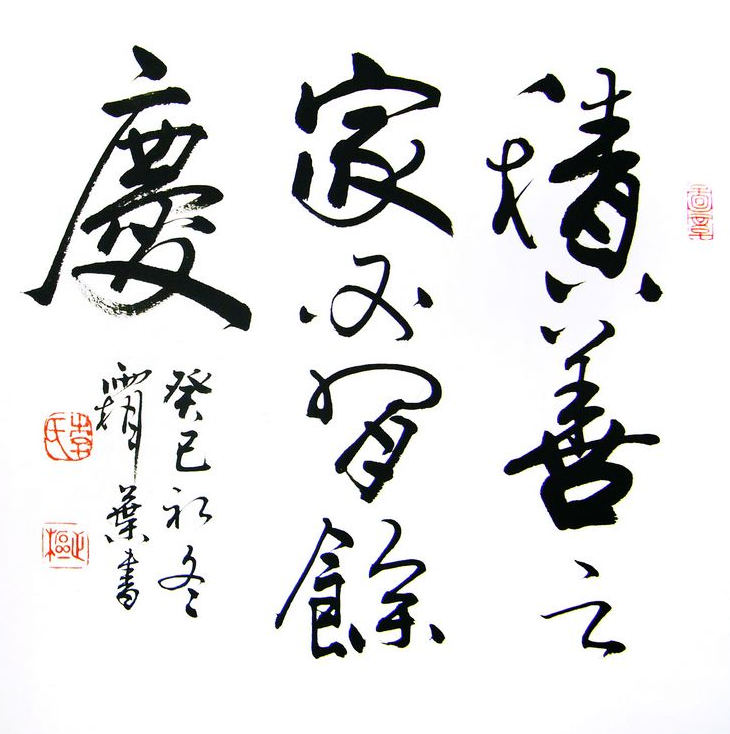 積善之
家必有餘
慶
癸巳初冬
霜葉書
李氏